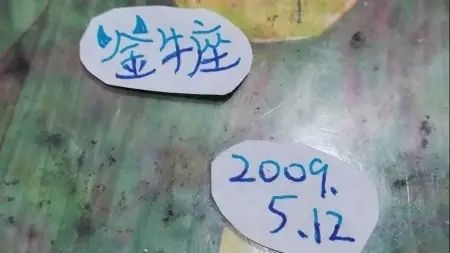 金牛座
2009.
5.12